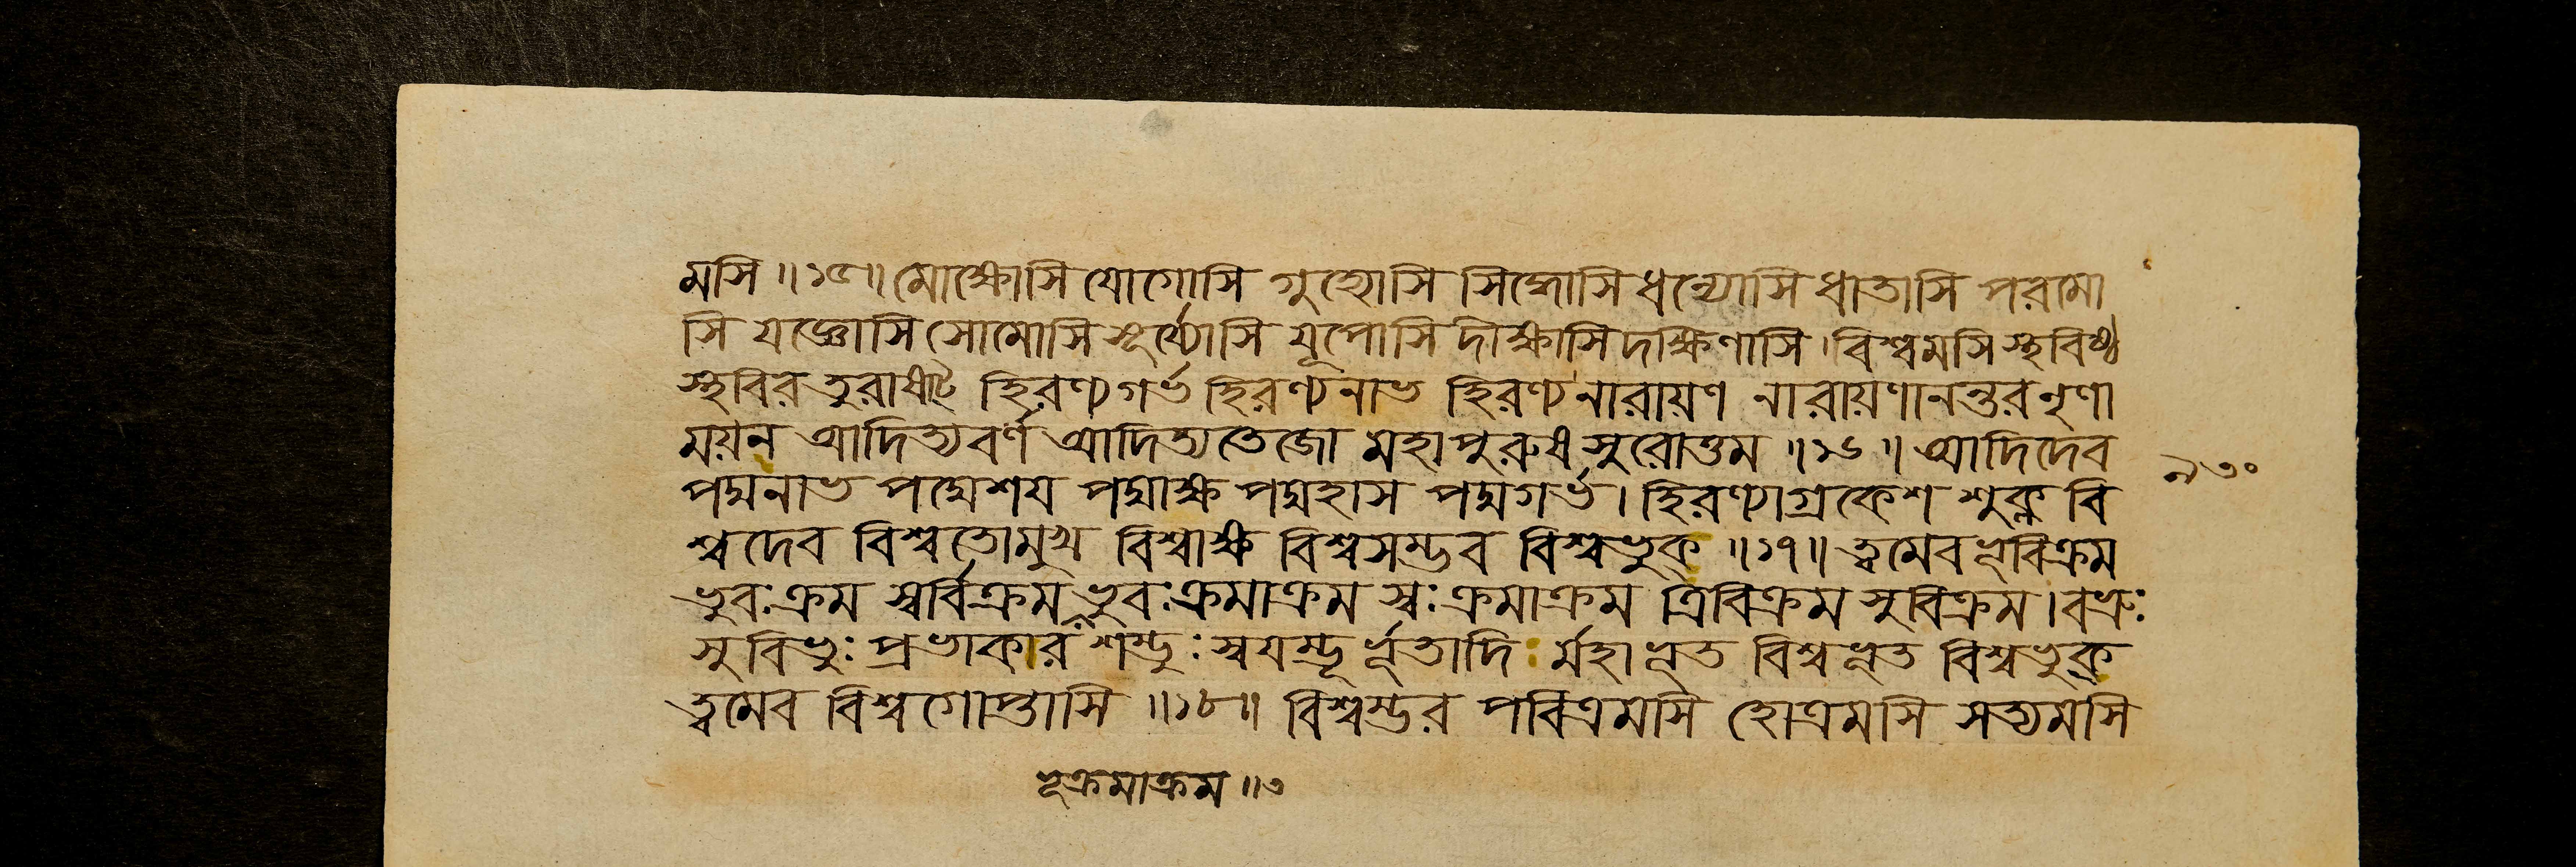 মসি ॥১৫॥ মোক্ষোসি যোগোসি গুহ্যোসি সিদ্ধোসি ধন্যোসি ধাতাসি পরমো
সি যজ্ঞোসি সোমোসি সূর্য্যোসি যূপোসি দীক্ষাসি দক্ষিণাসি। বিশ্বমসি স্থবিষ্ঠ
স্থবির তুরাষাট্ হিরণ্যগর্ভ হিরণ্যনাভ হিরণ্যনারায়ণ নারায়ণানন্তর নৃণা
ময়ন আদিত্যবর্ণ আদিত্যতেজো মহাপুরুষ সুরোত্তম ॥১৬॥ আদিদেব
পদ্মনাভ পদ্মেশয পদ্মাক্ষ পদ্মহাস পদ্মগর্ভ। হিরণ্যাগ্রকেশ শুক্ল বি
শ্বদেব বিশ্বতোমুখ বিশ্বাক্ষ বিশ্বসম্ভব বিশ্বভুক্ ॥১৭॥ ত্বমেব ভূবিক্রম
ভুবঃক্রম স্বর্বিক্রম ভুবঃক্রমাক্রম স্বঃক্রমাক্রম ত্রিবিক্রম সুবিক্রম। বভ্রুঃ
সুবিভুঃ প্রভাকার শম্ভুঃ স্বযম্ভূর্ভূতাদি র্মহাভূত বিশ্বভূত বিশ্বভুক্
ত্বমেব বিশ্বগোপ্তাসি ॥১৮॥ বিশ্বম্ভর পবিত্রমসি হোত্রমসি সত্যমসি
ভূক্রমাক্রম ॥৩